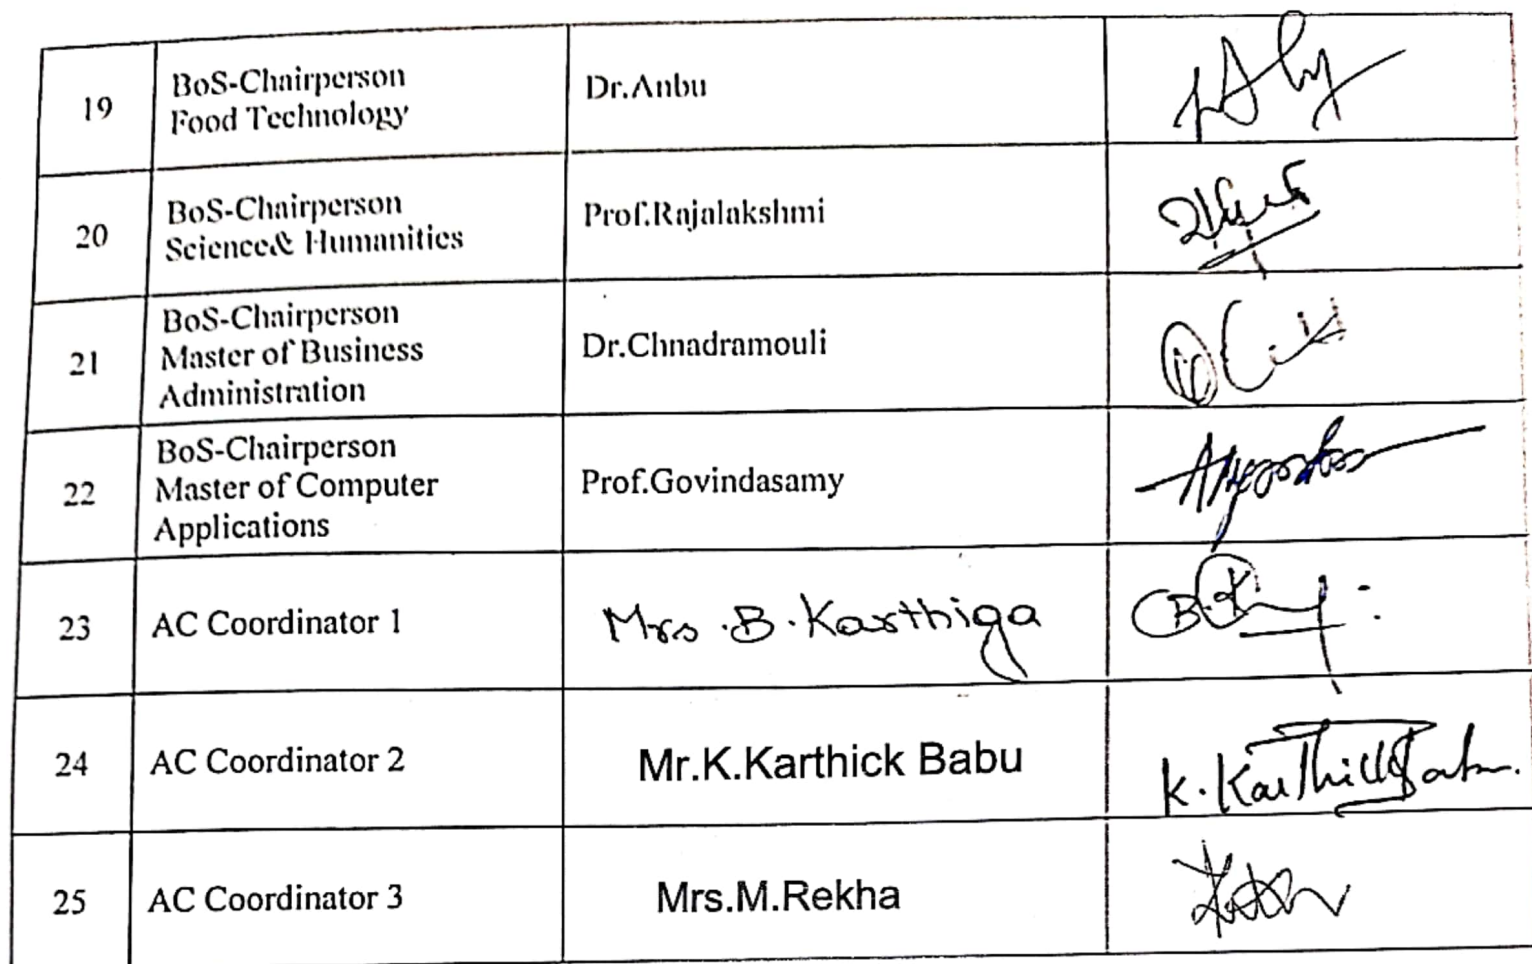 19
BoS-Chairperson
Food Technology
Dr.Anbu
20
BoS-Chairperson
Science& Humanities
Prof.Rajalakshmi
21
BoS-Chairperson
Master of Business
Administration
Dr.Chnadramouli
22
BoS-Chairperson
Master of Computer
Applications
Prof.Govindasamy
23
AC Coordinator 1
Mrs.B.Karthiga
24
AC Coordinator 2
Mr.K.Karthick Babu
K.Karthick Babu.
25
AC Coordinator 3
Mrs.M.Rekha